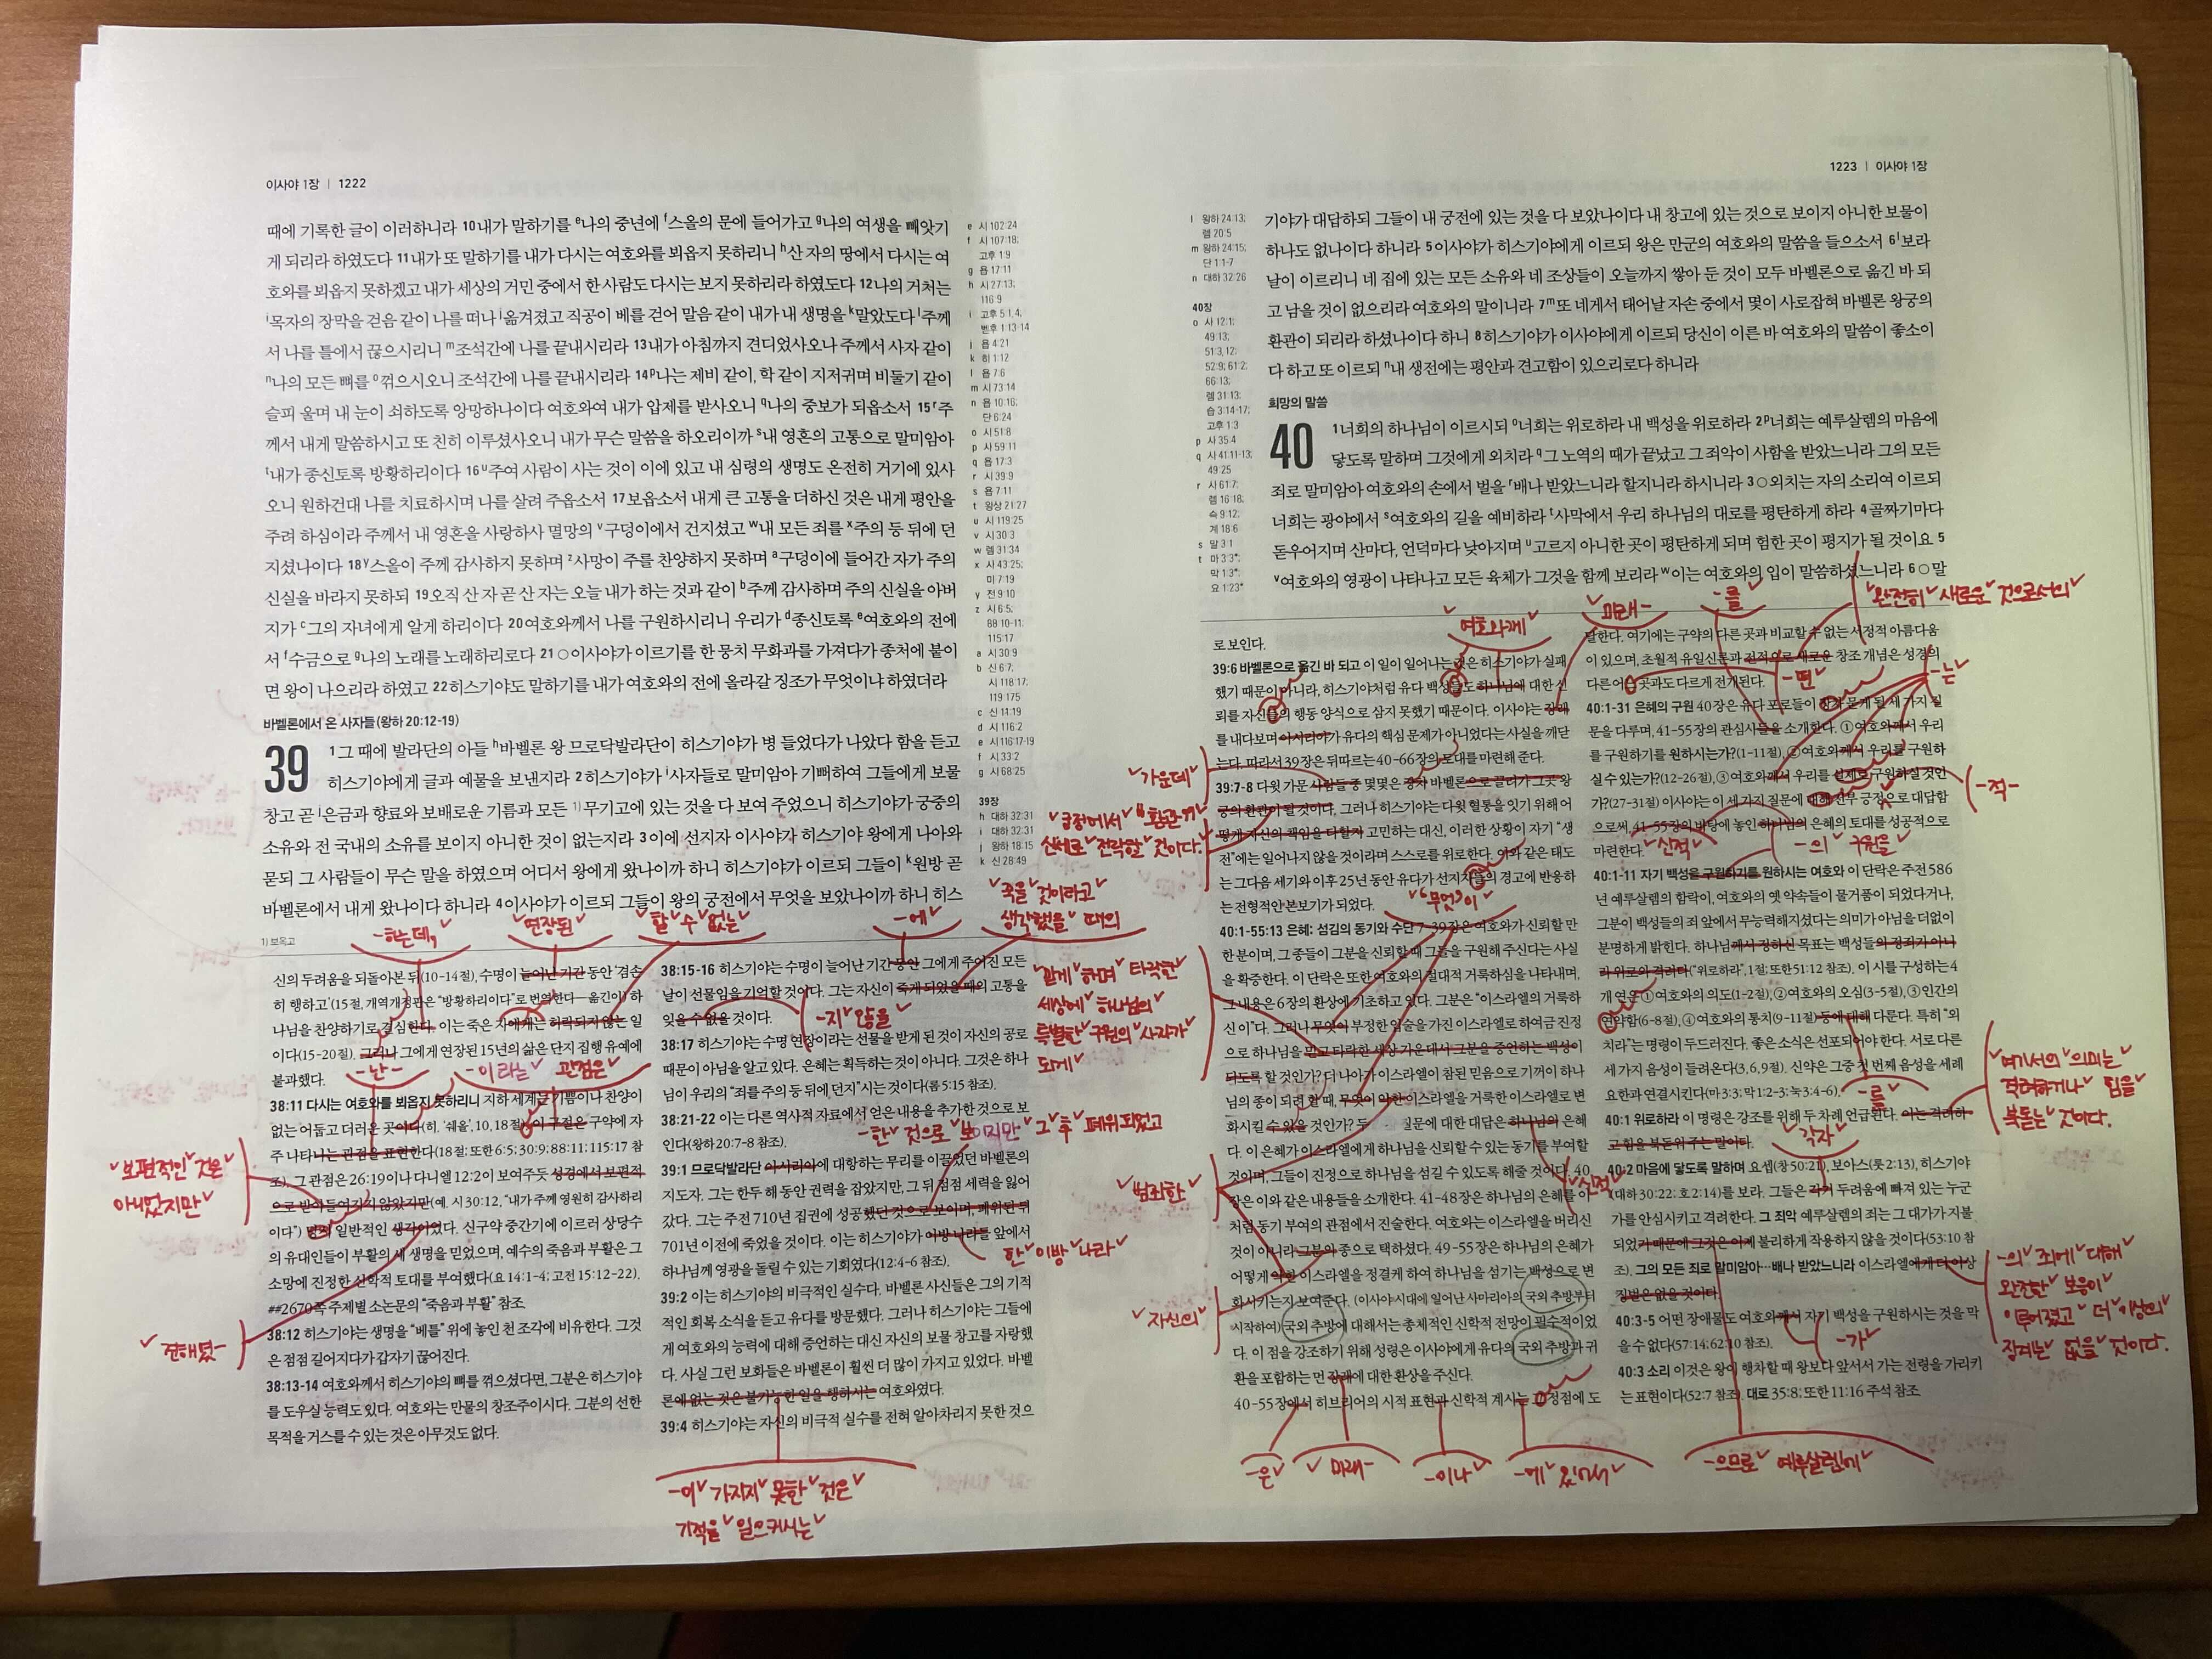 이사야 1장 | 1222
때에 기록한 글이 이러하니라 10내가 말하기를 e나의 중년에 f스올의 문에 들어가고 g나의 여생을 빼앗기
게 되리라 하였도다 11내가 또 말하기를 내가 다시는 여호와를 뵈옵지 못하리니 h산 자의 땅에서 다시는 여
호와를 뵈옵지 못하겠고 내가 세상의 거민 중에서 한 사람도 다시는 보지 못하리라 하였도다 12나의 거처는
i목자의 장막을 걷음 같이 나를 떠나 j옮겨졌고 직공이 베를 걷어 말음 같이 내가 내 생명을 k말았도다 l주께
서 나를 틀에서 끊으시리니 m조석간에 나를 끝내시리라 13내가 아침까지 견디었사오나 주께서 사자 같이
n나의 모든 뼈를 o꺾으시오니 조석간에 나를 끝내시리라 14p나는 제비 같이, 학 같이 지저귀며 비둘기 같이
슬피 울며 내 눈이 쇠하도록 앙망하나이다 여호와여 내가 압제를 받사오니 q나의 중보가 되옵소서 15r주
께서 내게 말씀하시고 또 친히 이루셨사오니 내가 무슨 말씀을 하오리이까 s내 영혼의 고통으로 말미암아
t내가 종신토록 방황하리이다 16u주여 사람이 사는 것이 이에 있고 내 심령의 생명도 온전히 거기에 있사
오니 원하건대 나를 치료하시며 나를 살려 주옵소서 17보옵소서 내게 큰 고통을 더하신 것은 내게 평안을
주려 하심이라 주께서 내 영혼을 사랑하사 멸망의 v구덩이에서 건지셨고 w내 모든 죄를 x주의 등 뒤에 던
지셨나이다 18y스올이 주께 감사하지 못하며 z사망이 주를 찬양하지 못하며 a구덩이에 들어간 자가 주의
신실을 바라지 못하되 19오직 산 자 곧 산 자는 오늘 내가 하는 것과 같이 b주께 감사하며 주의 신실을 아버
지가 c그의 자녀에게 알게 하리이다 20여호와께서 나를 구원하시리니 우리가 d종신토록 e여호와의 전에
서 f수금으로 g나의 노래를 노래하리로다 21○이사야가 이르기를 한 뭉치 무화과를 가져다가 종처에 붙이
면 왕이 나으리라 하였고 22히스기야도 말하기를 내가 여호와의 전에 올라갈 징조가 무엇이냐 하였더라
바벨론에서 온 사자들(왕하 20:12-19)
39
1그 때에 발라단의 아들 h바벨론 왕 므로닥발라단이 히스기야가 병 들었다가 나았다 함을 듣고
히스기야에게 글과 예물을 보낸지라 2히스기야가 i사자들로 말미암아 기뻐하여 그들에게 보물
창고 곧 j은금과 향료와 보배로운 기름과 모든 1)무기고에 있는 것을 다 보여 주었으니 히스기야가 궁중의
소유와 전 국내의 소유를 보이지 아니한 것이 없는지라 3이에 선지자 이사야가 히스기야 왕에게 나아와
묻되 그 사람들이 무슨 말을 하였으며 어디서 왕에게 왔나이까 하니 히스기야가 이르되 그들이 k원방 곧
바벨론에서 내게 왔나이다 하니라 4이사야가 이르되 그들이 왕의 궁전에서 무엇을 보았나이까 하니 히스
1) 보옥고
e 시 102:24
f 시 107:18;
고후 1:9
g 욥 17:11
h 시 27:13;
116:9
i 고후 5:1, 4;
벧후 1:13-14
j 욥 4:21
k 히 1:12
l 욥 7:6
m 시 73:14
n 욥 10:16;
단 6:24
o 시 51:8
p 사 59:11
q 욥 17:3
r 시 39:9
s 욥 7:11
t 왕상 21:27
u 시 119:25
v 시 30:3
w 렘 31:34
x 사 43:25;
미 7:19
y 전 9:10
z 시 6:5;
88:10-11;
115:17
a 시 30:9
b 신 6:7;
시 118:17;
119:175
c 신 11:19
d 시 116:2
e 시 116:17-19
f 시 33:2
g 시 68:25
39장
h 대하 32:31
i 대하 32:31
j 왕하 18:15
k 신 28:49
-하는데,
연장된
할 수 없는
-에
죽을 것이라고
생각했을 때의
신의 두려움을 되돌아본 뒤(10-14절), 수명이 늘어난 기간 동안 '겸손
히 행하고'(15절, 개역개정판은 "방황하리이다"로 번역한다—옮긴이) 하
나님을 찬양하기로 결심한다. 이는 죽은 자에게는 허락되지 않는 일
이다(15-20절). 그러나 그에게 연장된 15년의 삶은 단지 집행 유예에
불과했다.
-난-
-이라는 관점은
38:11 다시는 여호와를 뵈옵지 못하리니 지하 세계는 기쁨이나 찬양이
없는 어둡고 더러운 곳이다(히, '쉐올', 10, 18절). 이 구절은 구약에 자
주 나타나는 관점을 표현한다(18절; 또한 6:5; 30:9; 88:11; 115:17 참
조). 그 관점은 26:19이나 다니엘 12:2이 보여주듯 성경에서 보편적
으로 받아들여지지 않았지만(예. 시 30:12, "내가 주께 영원히 감사하리
이다") 일반적인 생각이었다. 신구약 중간기에 이르러 상당수
의 유대인들이 부활의 새 생명을 믿었으며, 예수의 죽음과 부활은 그
소망에 진정한 신학적 토대를 부여했다(요 14:1-4; 고전 15:12-22).
##2670쪽 주제별 소논문의 "죽음과 부활" 참조
38:12 히스기야는 생명을 "베틀" 위에 놓인 천 조각에 비유한다. 그것
은 점점 길어지다가 갑자기 끊어진다.
38:13-14 여호와께서 히스기야의 뼈를 꺾으셨다면, 그분은 히스기야
를 도우실 능력도 있다. 여호와는 만물의 창조주이시다. 그분의 선한
목적을 거스를 수 있는 것은 아무것도 없다.
보편적인 것은
아니었지만
전해졌-
38:15-16 히스기야는 수명이 늘어난 기간 동안 그에게 주어진 모든
날이 선물임을 기억할 것이다. 그는 자신이 죽게 되었을 때의 고통을
잊을 수 없을 것이다.
-지 않을
38:17 히스기야는 수명 연장이라는 선물을 받게 된 것이 자신의 공로
때문이 아님을 알고 있다. 은혜는 획득하는 것이 아니다. 그것은 하나
님이 우리의 "죄를 주의 등 뒤에 던지"시는 것이다(롬 5:15 참조).
38:21-22 이는 다른 역사적 자료에서 얻은 내용을 추가한 것으로 보
인다(왕하 20:7-8 참조).
-한 것으로 보이지만 그 후 폐위되었고
39:1 므로닥발라단 아시리아에 대항하는 무리를 이끌었던 바벨론의
지도자. 그는 한두 해 동안 권력을 잡았지만, 그 뒤 점점 세력을 잃어
갔다. 그는 주전 710년 집권에 성공했던 것으로 보이며, 폐위된 뒤
701년 이전에 죽었을 것이다. 이는 히스기야가 이방 나라들 앞에서
하나님께 영광을 돌릴 수 있는 기회였다(12:4-6 참조).
한 이방 나라
39:2 이는 히스기야의 비극적인 실수다. 바벨론 사신들은 그의 기적
적인 회복 소식을 듣고 유다를 방문했다. 그러나 히스기야는 그들에
게 여호와의 능력에 대해 증언하는 대신 자신의 보물 창고를 자랑했
다. 사실 그런 보화들은 바벨론이 훨씬 더 많이 가지고 있었다. 바벨
론에 없는 것은 불가능한 일을 행하시는 여호와였다.
39:4 히스기야는 자신의 비극적 실수를 전혀 알아차리지 못한 것으
-이 가지지 못한 것은
기적을 일으키시는
1223 | 이사야 1장
l 왕하 24:13;
렘 20:5
m 왕하 24:15;
단 1:1-7
n 대하 32:26
40장
o 사 12:1;
49:13;
51:3, 12;
52:9; 61:2;
66:13;
렘 31:13;
습 3:14-17;
고후 1:3
p 사 35:4
q 사 41:11-13;
49:25
r 사 61:7;
렘 16:18;
슥 9:12;
계 18:6
s 말 3:1
t 마 3:3*;
막 1:3*;
요 1:23*
기야가 대답하되 그들이 내 궁전에 있는 것을 다 보았나이다 내 창고에 있는 것으로 보이지 아니한 보물이
하나도 없나이다 하니라 5이사야가 히스기야에게 이르되 왕은 만군의 여호와의 말씀을 들으소서 6l보라
날이 이르리니 네 집에 있는 모든 소유와 네 조상들이 오늘까지 쌓아 둔 것이 모두 바벨론으로 옮긴 바 되
고 남을 것이 없으리라 여호와의 말이니라 7m또 네게서 태어날 자손 중에서 몇이 사로잡혀 바벨론 왕궁의
환관이 되리라 하셨나이다 하니 8히스기야가 이사야에게 이르되 당신이 이른 바 여호와의 말씀이 좋소이
다 하고 또 이르되 n내 생전에는 평안과 견고함이 있으리로다 하니라
희망의 말씀
40
1너희의 하나님이 이르시되 o너희는 위로하라 내 백성을 위로하라 2p너희는 예루살렘의 마음에
닿도록 말하며 그것에게 외치라 q그 노역의 때가 끝났고 그 죄악이 사함을 받았느니라 그의 모든
죄로 말미암아 여호와의 손에서 벌을 r배나 받았느니라 할지니라 하시니라 3○외치는 자의 소리여 이르되
너희는 광야에서 s여호와의 길을 예비하라 t사막에서 우리 하나님의 대로를 평탄하게 하라 4 골짜기마다
돋우어지며 산마다, 언덕마다 낮아지며 u고르지 아니한 곳이 평탄하게 되며 험한 곳이 평지가 될 것이요 5
v여호와의 영광이 나타나고 모든 육체가 그것을 함께 보리라 w이는 여호와의 입이 말씀하셨느니라 6○말
여호와께
미래-
-를
완전히 새로운 것으로서의
로 보인다.
39:6 바벨론으로 옮긴 바 되고 이 일이 일어나는 것은 히스기야가 실패
했기 때문이 아니라, 히스기야처럼 유다 백성들도 하나님에 대한 신
뢰를 자신들의 행동 양식으로 삼지 못했기 때문이다. 이사야는 장래
를 내다보며 아시리아가 유다의 핵심 문제가 아니었다는 사실을 깨닫
는다. 따라서 39장은 뒤따르는 40-66장의 토대를 마련해 준다.
가운데
39:7-8 다윗 가문 사람들 중 몇몇은 장차 바벨론으로 끌려가 그곳 왕
궁의 환관이 될 것이다. 그러나 히스기야는 다윗 혈통을 잇기 위해 어
떻게 자신의 책임을 다할지 고민하는 대신, 이러한 상황이 자기 "생
전"에는 일어나지 않을 것이라며 스스로를 위로한다. 이와 같은 태도
는 그다음 세기와 이후 25년 동안 유다가 선지자들의 경고에 반응하
는 전형적인 본보기가 되었다.
궁정에서 "환관"의
신세로 전락할 것이다.
"무엇"이
40:1-55:13 은혜: 섬김의 동기와 수단 7-39장은 여호와가 신뢰할 만
한 분이며, 그 종들이 그분을 신뢰할 때 그들을 구원해 주신다는 사실
을 확증한다. 이 단락은 또한 여호와의 절대적 거룩하심을 나타내며,
그 내용은 6장의 환상에 기초하고 있다. 그분은 "이스라엘의 거룩하
신 이"다. 그러나 무엇이 부정한 입술을 가진 이스라엘로 하여금 진정
으로 하나님을 믿고 타락한 세상 가운데서 그분을 증언하는 백성이
되도록 할 것인가? 더 나아가 이스라엘이 참된 믿음으로 기꺼이 하나
님의 종이 되려 할 때, 무엇이 악한 이스라엘을 거룩한 이스라엘로 변
화시킬 수 있을 것인가? 두 질문에 대한 대답은 하나님의 은혜
다. 이 은혜가 이스라엘에게 하나님을 신뢰할 수 있는 동기를 부여할
것이며, 그들이 진정으로 하나님을 섬길 수 있도록 해줄 것이다. 40
장은 이와 같은 내용들을 소개한다. 41-48장은 하나님의 은혜를 이
처럼 동기 부여의 관점에서 진술한다. 여호와는 이스라엘을 버리신
것이 아니라 그분의 종으로 택하셨다. 49-55장은 하나님의 은혜가
어떻게 악한 이스라엘을 정결케 하여 하나님을 섬기는 백성으로 변
화시키는지 보여준다. (이사야 시대에 일어난 사마리아의 국외 추방부터
시작하여) 국외 추방에 대해서는 총체적인 신학적 전망이 필수적이었
다. 이 점을 강조하기 위해 성령은 이사야에게 유다의 국외 추방과 귀
환을 포함하는 먼 장래에 대한 환상을 주신다.
40-55장에서 히브리어의 시적 표현과 신학적 계시는 정점에 도
믿게 하며 타락한
세상에 하나님의
특별한 구원의 사자가
되게
범죄한
자신의
신적
-은
미래-
-이나
-에 있어서
-으로 예루살렘에
달한다. 여기에는 구약의 다른 곳과 비교할 수 없는 서정적 아름다움
이 있으며, 초월적 유일신론과 전적으로 새로운 창조 개념은 성경의
다른 어느 곳과도 다르게 전개된다.
-는
40:1-31 은혜의 구원 40장은 유다 포로들이 장차 묻게 될 세 가지 질
문을 다루며, 41-55장의 관심사들을 소개한다. ①여호와께서 우리
를 구원하기를 원하시는가?(1-11절), ②여호와께서 우리를 구원하
실 수 있는가?(12-26절), ③여호와께서 우리를 실제로 구원하실 것인
가?(27-31절) 이사야는 이 세 가지 질문에 대해 전부 긍정으로 대답함
으로써, 41-55장의 바탕에 놓인 하나님의 은혜의 토대를 성공적으로
마련한다.
-적-
신적
-의 구원을
40:1-11 자기 백성을 구원하기를 원하시는 여호와 이 단락은 주전 586
년 예루살렘의 함락이, 여호와의 옛 약속들이 물거품이 되었다거나,
그분이 백성들의 죄 앞에서 무능력해지셨다는 의미가 아님을 더없이
분명하게 밝힌다. 하나님께서 정하신 목표는 백성들의 정죄가 아니
라 위로와 격려다("위로하라", 1절; 또한 51:12 참조). 이 시를 구성하는 4
개 연은 ①여호와의 의도(1-2절), ②여호와의 오심(3-5절), ③인간의
연약함(6-8절), ④여호와의 통치(9-11절) 등에 대해 다룬다. 특히 "외
치라"는 명령이 두드러진다. 좋은 소식은 선포되어야 한다. 서로 다른
세 가지 음성이 들려온다(3, 6, 9절). 신약은 그중 첫 번째 음성을 세례
요한과 연결시킨다(마 3:3; 막 1:2-3; 눅 3:4-6).
-를
여기서의 의미는
격려하거나 힘을
북돋는 것이다.
40:1 위로하라 이 명령은 강조를 위해 두 차례 언급된다. 이는 격려하
고 힘을 북돋워 주는 말이다.
각자
40:2 마음에 닿도록 말하며 요셉(창 50:21), 보아스(룻 2:13), 히스기야
(대하 30:22; 호 2:14)를 보라. 그들은 각기 두려움에 빠져 있는 누군
가를 안심시키고 격려한다. 그 죄악 예루살렘의 죄는 그 대가가 지불
되었기 때문에 그것은 이제 불리하게 작용하지 않을 것이다(53:10 참
조). 그의 모든 죄로 말미암아…배나 받았느니라 이스라엘에게 더 이상
징벌은 없을 것이다.
-의 죄에 대해
완전한 보응이
이루어졌고 더 이상의
징계는 없을 것이다.
40:3-5 어떤 장애물도 여호와께서 자기 백성을 구원하시는 것을 막
을 수 없다(57:14; 62:10 참조).
-가
40:3 소리 이것은 왕이 행차할 때 왕보다 앞서서 가는 전령을 가리키
는 표현이다(52:7 참조). 대로 35:8; 또한 11:16 주석 참조